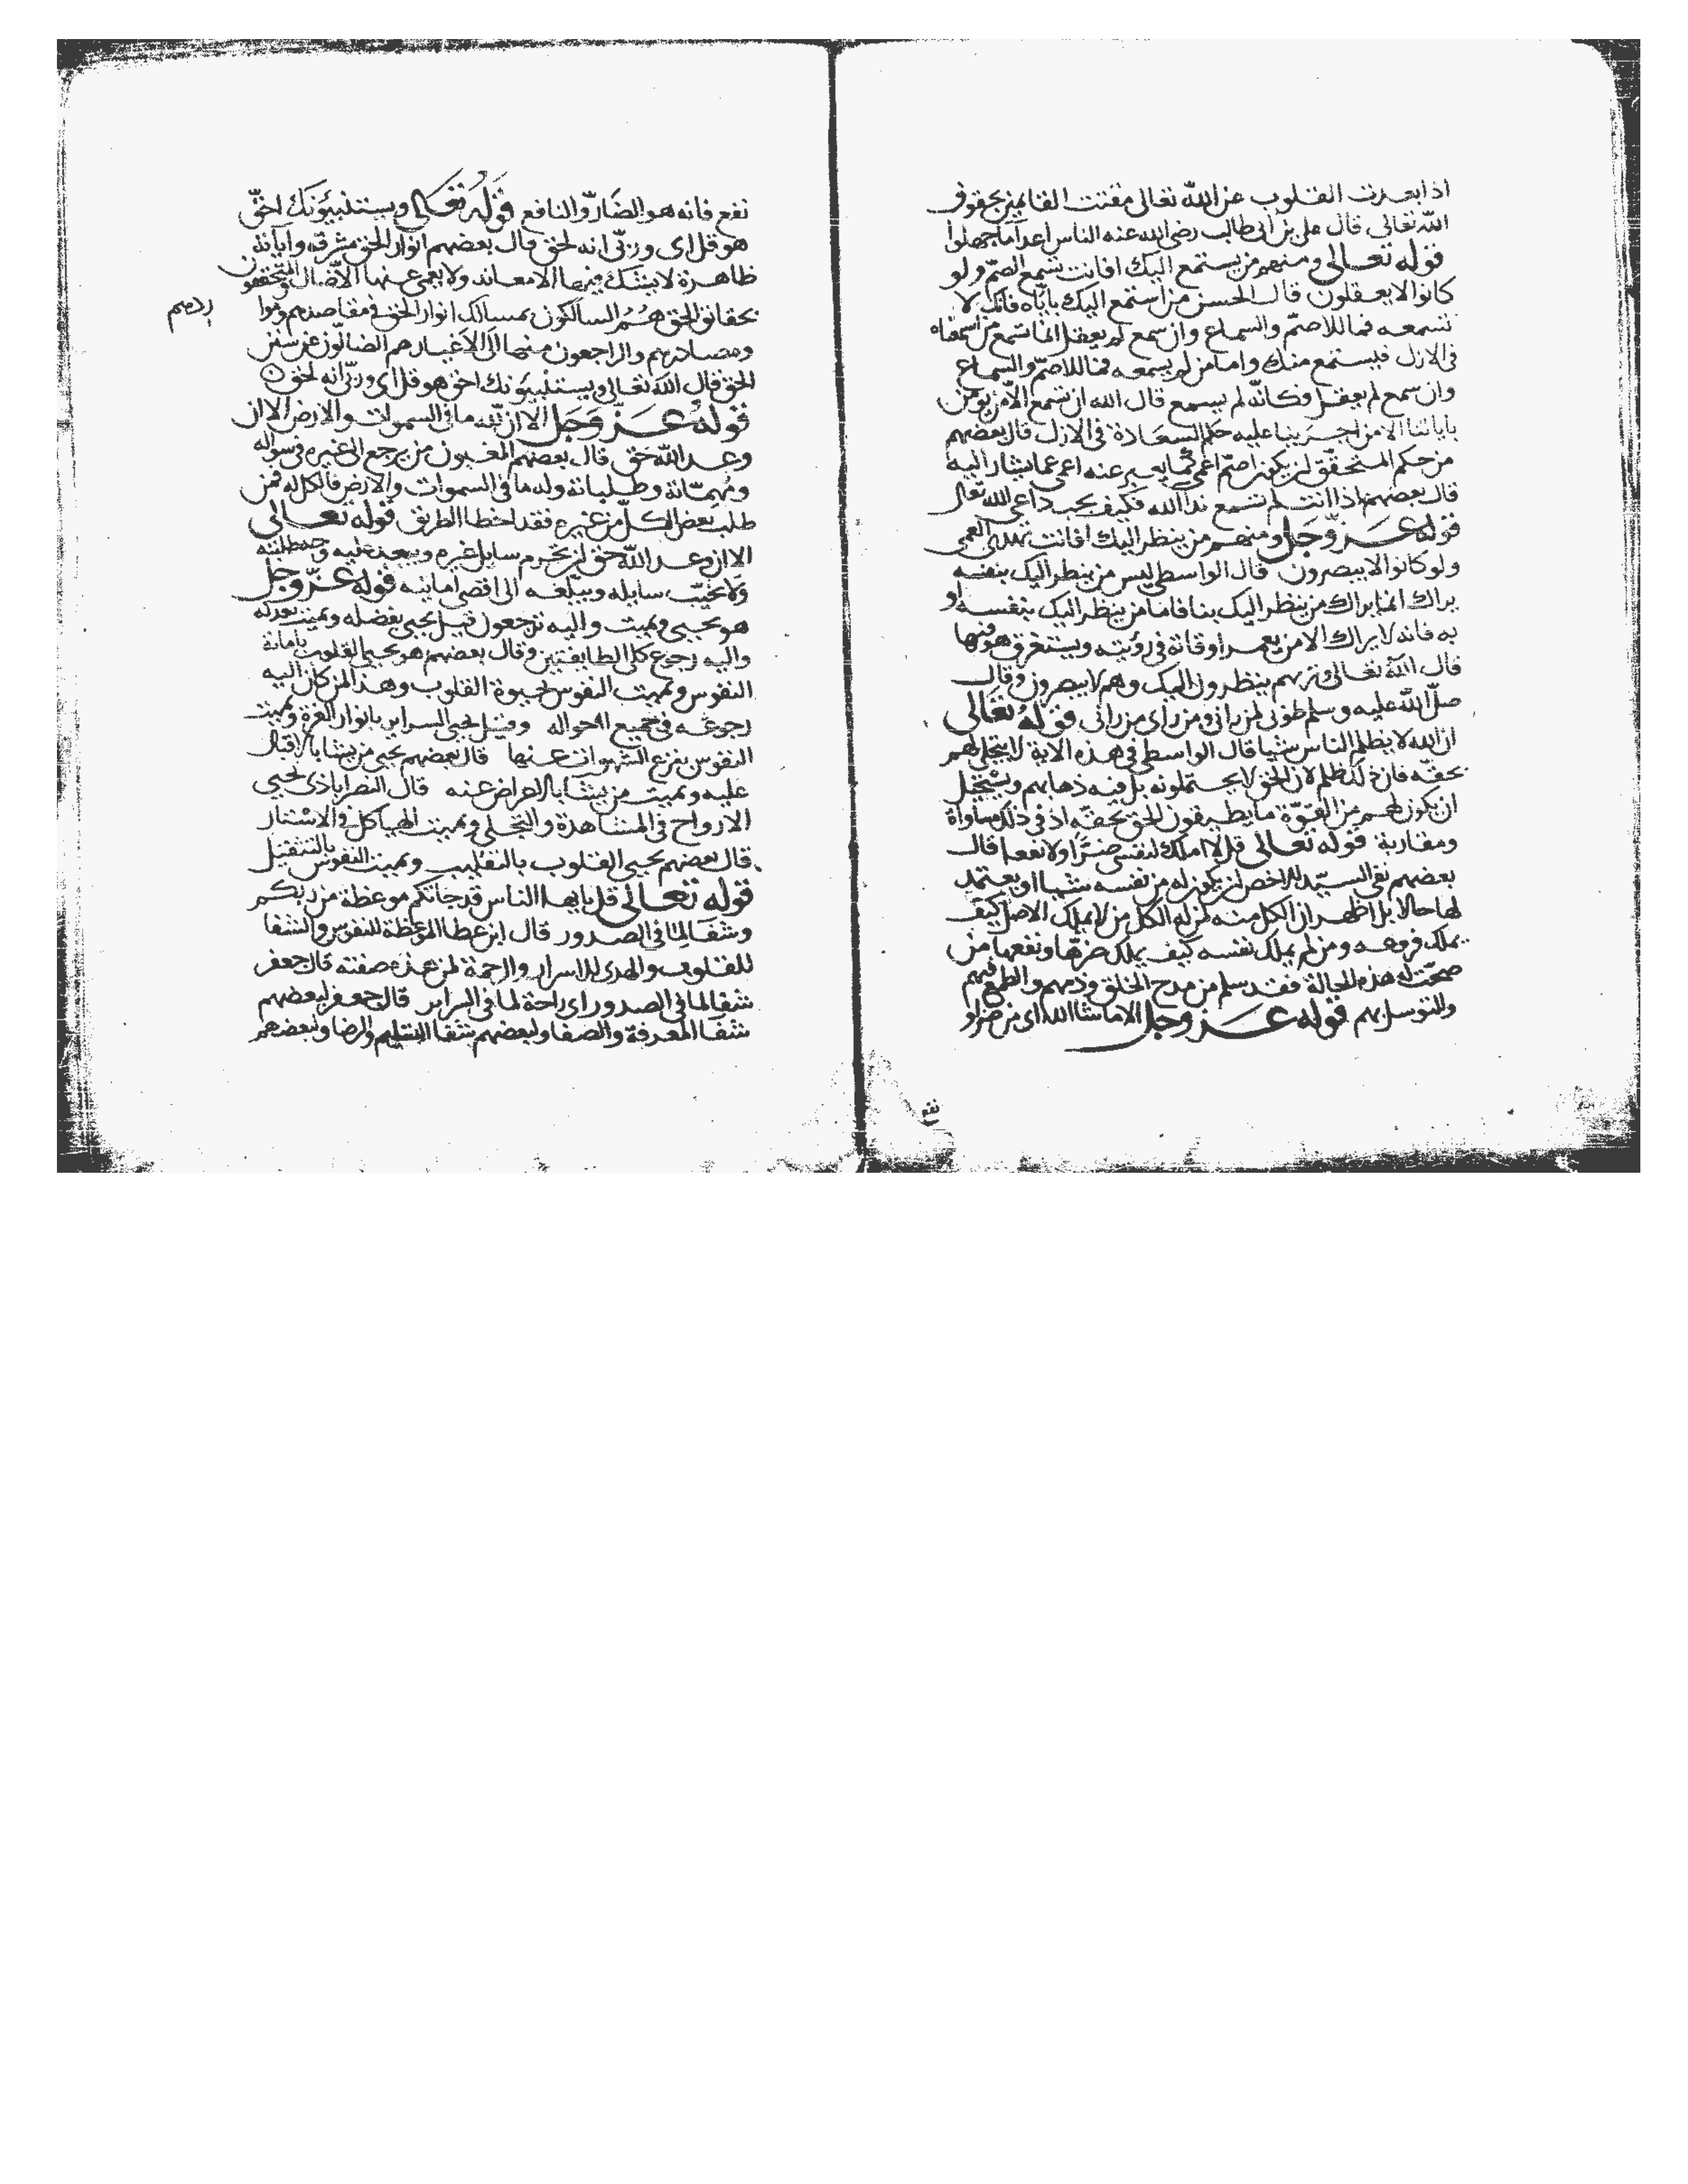 اذا بعدت القلوب عن الله تعالى مقتت القائمين بحقوق
الله تعالى قال على بن ابى طالب رضى الله عنه الناس اعدا ما جهلوا
قوله تعالى ومنهم من يستمع اليك افانت تسمع الصمّ ولو
كانوا لا يعقلون قال الحسن من استمع اليك باياه فانك لا
تسمعه فما للاصمّ والسماع وان سمع لم يعقل انما تسمع من اسمعناه
فى الازل فيستمع منك واما من لم يسمعه فما للاصمّ والسماع
وان سمع لم يعقل وكانّه لم يسمع قال الله ان تسمع الا من يومن
باياتنا الا من اجرينا عليه حكم السعادة فى الازل قال بعضهم
من حكم المتحقّق ان يكون اصمّ اعمى عما يعبر عنه اعمى عما يشار اليه
قال بعضهم اذا انت لم تسمع ندآ الله فكيف يجب داعى الله تعالى
قوله عزّ وجل ومنهم من ينظر اليك افانت تهدى العمى
ولو كانوا لا يبصرون قال الواسطى ليس من ينظر اليك بنفسه
يراك انما يراك من ينظر اليك بنا فاما من ينظر اليك بنفسه او
به فانه لا يراك الا من يعمر اوقاته فى رؤيته ويستغرق هو فيها
قال الله تعالى وتريهم ينظرون اليك وهم لا يبصرون وقال
صلّى الله عليه وسلم طوبى لمن رانى ومن راى من رانى قوله تعالى
ان الله لا يظلم الناس شيئا قال الواسطى فى هذه الاية لا يتجلى لهم
بحقّه فان ذلك ظلم لان الخلق لا يحتملونه بل فيه ذهابهم ويستحيل
ان يكون لهم من القوّة ما يطيقون الحق بحقّه اذ فى ذلك مساواة
ومقاربة قوله تعالى قل لا املك لنفسى ضرّا ولا نفعا قال
بعضهم نفى السيّد الاخص ان يكون له من نفسه شيئا او يعتمد
لها حالا بل اظهر ان الكل منه لمن له الكل من لا يملك الاصل كيف
يملك فرعه ومن لم يملك نفسه كيف يملك ضرّها ونفعها من
صحّت له هذه الحالة فقد سلم من مدح الخلق وذمهم والطمع فيهم
والتوسل بهم قوله عز وجل الا ما شا الله اى من ضر او
نفع
نفع فانه هو الضارّ والنافع قوله تعالى ويستنبيونك احقّ
هو قل اى وربّى انه لحق قال بعضهم انوار الحق مشرقه واياته
ظاهرة لا يشك فيها الا معاند ولا يعمى عنها الا ضال المتحققون
بحقائق الحق هم السالكون بمسالك انوار الحق فى مقاصدهم
ومصادرهم والراجعون منها الى الاغيار هم الضالّون عن سنن
الحق قال الله تعالى ويستنبيونك احق هو قل اى وربّى انه لحق
قوله عزّ وجل الا ان لله ما فى السموات والارض الا ان
وعد الله حق قال بعضهم المغبون من يرجع الى غيره فى سواله
ومهمّاته وطلباته وله ما فى السموات والارض فالكل له فمن
طلب بعض الكلّ من غيره فقد اخطا الطريق قوله تعالى
الا ان وعد الله حق لن يحرم سايل غيره ويبعد عليه وجه طلبته
ولا يخيّب سايله ويبلغه الى اقصى امانيه قوله عزّ وجل
هو يحيى ويميت واليه ترجعون قيل يحيى بفضله ويميت بعدله
واليه رجوع كلى الطايفتين وقال بعضهم هو يحيى القلوب باماتة
النفوس ويميت النفوس لحيوة القلوب وهذا لمن كان اليه
رجوعه فى جميع احواله وقيل يحيى السراير بانوار العزة ويميت
النفوس بنزع الشهوات عنها قال بعضهم يحيى من يشا بالاقبال
عليه ويميت من يشا بالاعراض عنه قال النصراباذى يحيى
الارواح فى المشاهدة والتجلى ويميت الهياكل فى الاستتار
قال بعضهم يحيى القلوب بالتقليب ويميت النفوس بالتنقيل
قوله تعالى قل يايها الناس قد جاتكم موعظة من ربكم
وشفآ لما فى الصدور قال ابن عطا الموعظة للنفوس والشفا
للقلوب والهدى للاسرار والرحمة لمن هذه صفته قال جعفر
شفا لما فى الصدور اى راحة لما فى السراير قال جعفر لبعضهم
شفآ المعرفة والصفا ولبعضهم شفا التسليم والرضا ولبعضهم